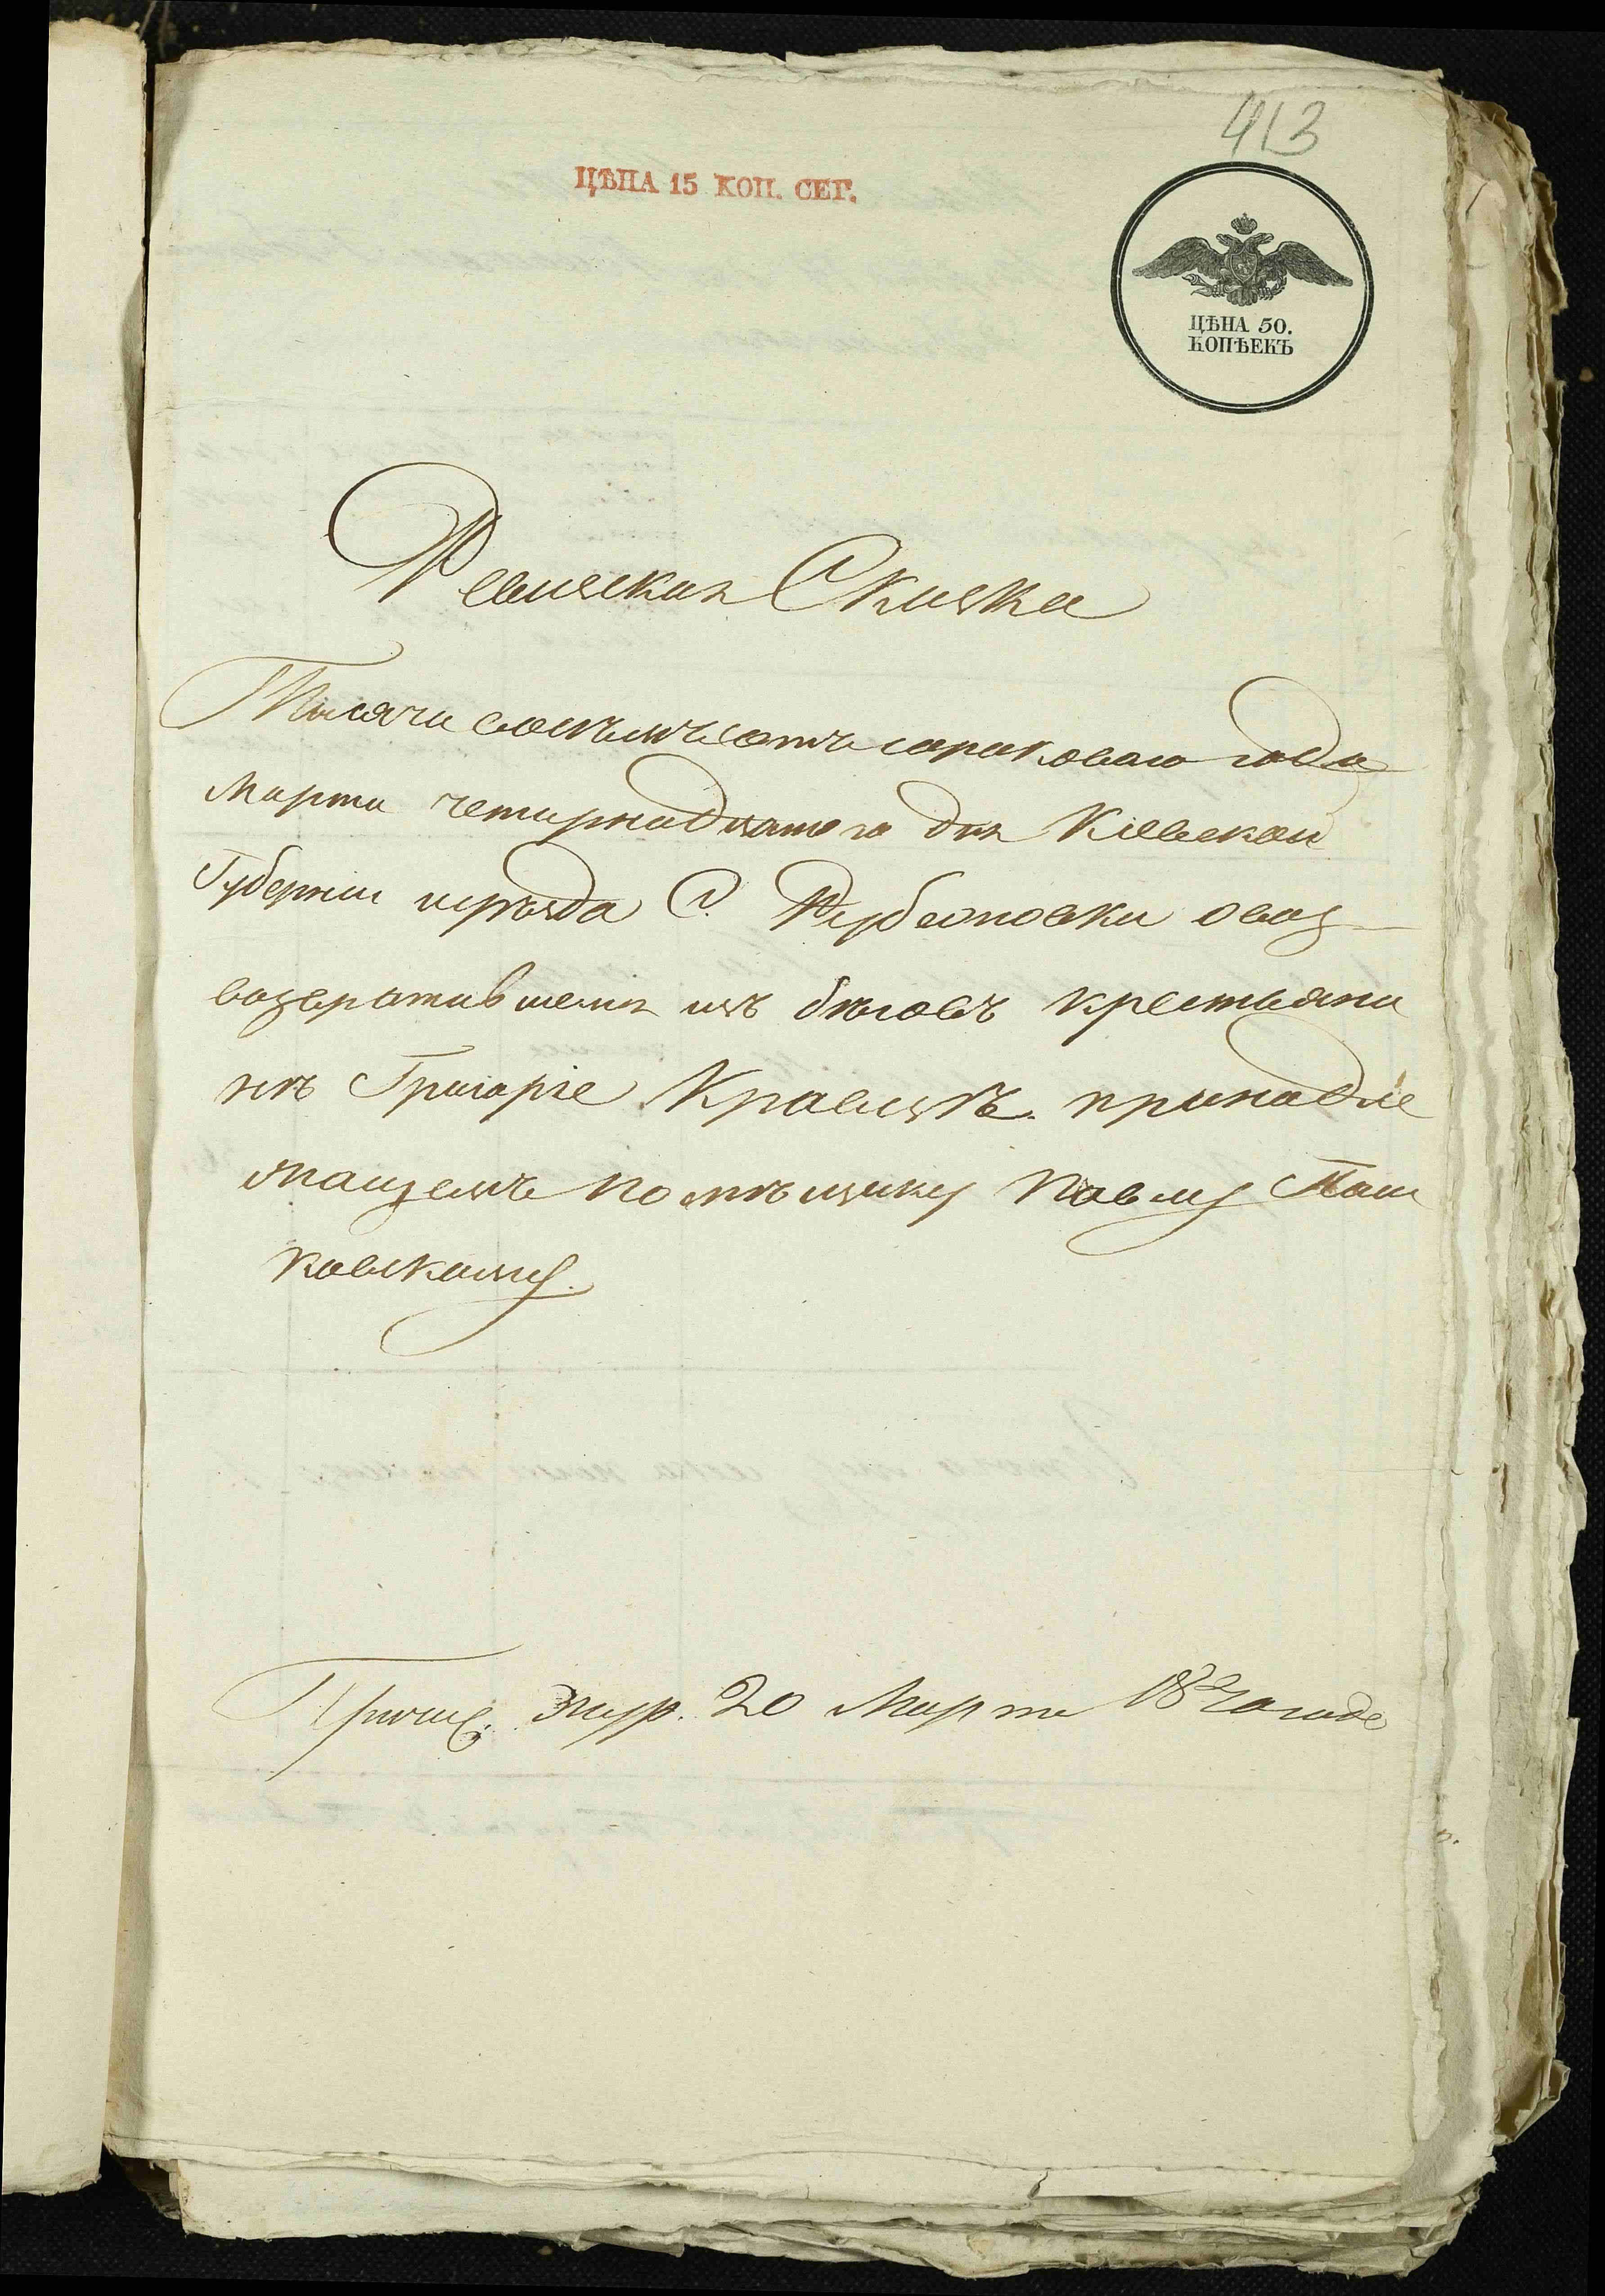 413
ЦѢНА 15 КОП. СЕР.
ЦѢНА 50.
КОПѢЕКЪ
Ревизская Сказка
Тысяча восѣмъсотъ сороковаго года
Марта четирнадцатого дня Кіевской
Губерніи уѣзда С. овоз
возвратившемся изъ бѣговъ крестьяни
нѣ Григоріе Кравцѣ принадле
жащемъ помѣщику Павлу Паш
ковскому.
Журн. 20 Марта 1840 года